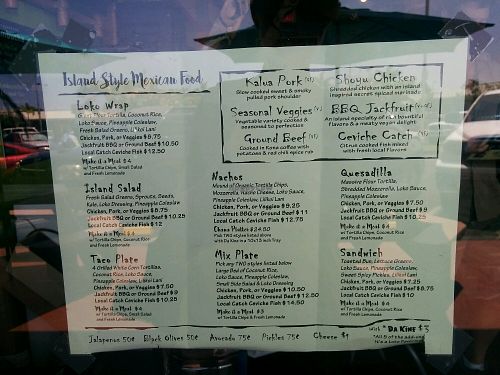 Island Style Mexican Food
Loko Wrap
Giant Flour Tortilla, Coconut Rice,
Loko Sauce, Pineapple Coleslaw,
Fresh Salad Greens, Lilikoi Lani
Chicken, Pork, or Veggies $8.75
Jackfruit BBQ or Ground Beef $10.50
Local Catch Ceviche Fish $12.50
Make it a Meal $4
w/ Tortilla Chips, Small Salad
and Fresh Lemonade
Island Salad
Fresh Salad Greens, Sprouts, Seeds,
Kale, Loko Dressing, Pineapple Coleslaw
Chicken, Pork, or Veggies $8.75
Jackfruit BBQ or Ground Beef $10.25
Local Catch Ceviche Fish $12
Make it a Meal $4
w/ Tortilla Chips, Coconut Rice
and Fresh Lemonade
Taco Plate
4 Grilled White Corn Tortillas,
Coconut Rice, Loko Sauce,
Pineapple Coleslaw
Chicken, Pork, or Veggies $7.50
Jackfruit BBQ or Ground Beef $9
Local Catch Ceviche Fish $10
Make it a Meal $4
w/ Tortilla Chips, Small Salad
& Fresh Lemonade
Kalua Pork
Slow cooked sweet & smoky
pulled pork shoulder
Seasonal Veggies
Vegetable variety cooked &
seasoned to perfection
Ground Beef
Cooked in Kona coffee with
potatoes & red chili spice rub
Shoyu Chicken
Shredded chicken with an island
inspired secret spiced marinade
BBQ Jackfruit
An island specialty of rich bountiful
flavors & a meaty vegan delight
Ceviche Catch
Citrus cooked Fish mixed
with fresh local flavors
Nachos
Mound of Organic Tortilla Chips,
Mozzarella, Nacho Cheese, Loko Sauce,
Pineapple Coleslaw, Lilikoi Lani
Chicken, Pork, or Veggies $9.25
Jackfruit BBQ or Ground Beef $11
Local Catch Ceviche Fish $12.75
Ohana Platter $24.50
Mix TWO styles listed above
with Da Kine in a 10x13 inch Tray
Mix Plate
Pick any TWO styles listed below
Large Bed of Coconut Rice,
Loko Sauce, Pineapple Coleslaw,
Small Side Salad & Loko Dressing
Chicken, Pork, or Veggies $10.50
Jackfruit BBQ or Ground Beef $12
Local Catch Ceviche Fish $13
Make it a Meal $4
w/ Tortilla Chips
& Fresh Lemonade
Quesadilla
Massive Flour Tortilla,
Shredded Mozzarella, Loko Sauce,
Pineapple Coleslaw
Chicken, Pork, or Veggies $8.75
Jackfruit BBQ or Ground Beef $10.25
Local Catch Ceviche Fish $12
Make it a Meal $4
w/ Tortilla Chips, Coconut Rice
and Fresh Lemonade
Sandwich
Toasted Bun, Lettuce Greens,
Loko Sauce, Pineapple Coleslaw,
Sweet Spicy Pickles, Lilikoi Lani
Chicken, Pork, or Veggies $7.50
Jackfruit BBQ or Ground Beef $9
Local Catch Ceviche Fish $10
Make it a Meal $4
w/ Tortilla Chips, Coconut Rice
& Fresh Lemonade
Jalapenos 50¢ Black Olives 50¢ Avocado 75¢ Pickles 75¢ Cheese $1
with "Da Kine $3